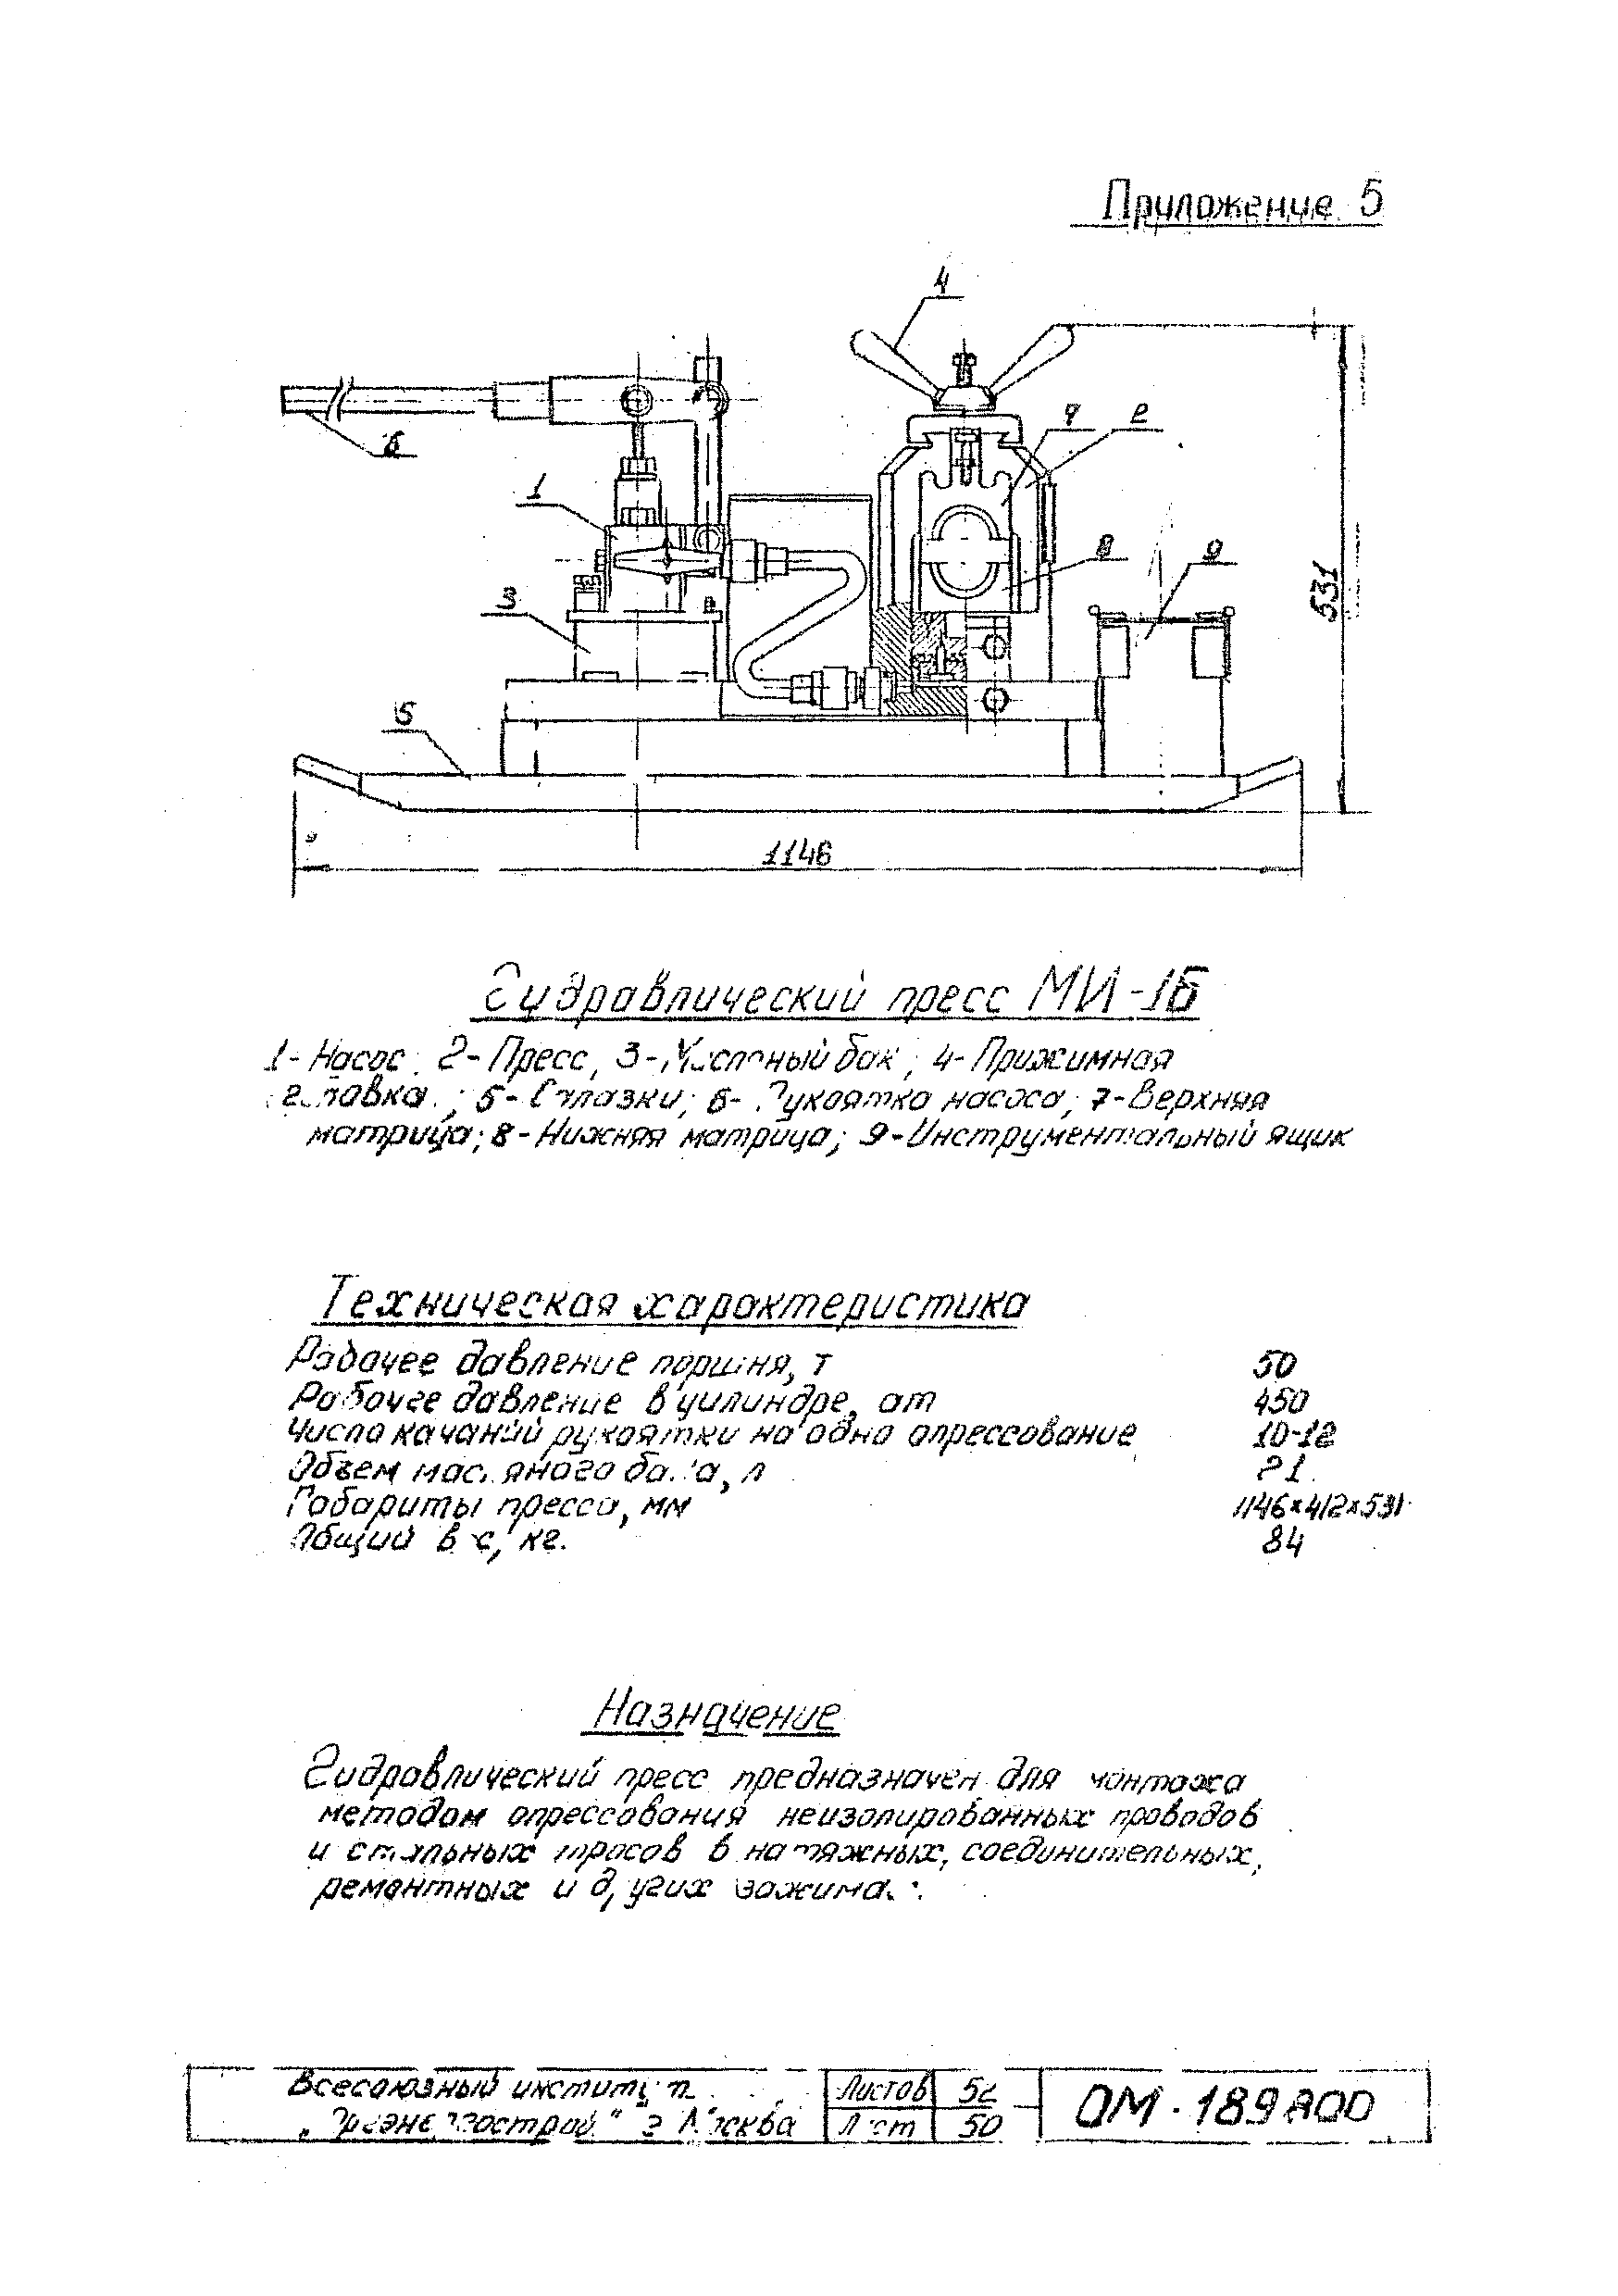 Приложение 5
4
7 2
6
1
8 9
3
531
5
1146
Гидравлический пресс МИ-1Б
1- Насос; 2- Пресс, 3- Масляный бак; 4- Прижимная
головка; 5- Салазки; 6- Рукоятка насоса; 7- Верхняя
матрица; 8- Нижняя матрица; 9- Инструментальный ящик
Техническая характеристика
Рабочее давление поршня, т 50
Рабочее давление в цилиндре, ат 450
Число качаний рукоятки на одно опрессование 10-12
Объем масляного бака, л
Габариты пресса, мм 1146x412x531
Общий вес, кг. 84
Назначение
Гидравлический пресс предназначен для монтажа
методом опрессования неизолированных проводов
и стальных тросов в натяжных, соединительных,
ремонтных и других зажимах.
Всесоюзный институт Листов 52
„Оргэнергострой" г Москва Лист 50
ОМ-189800